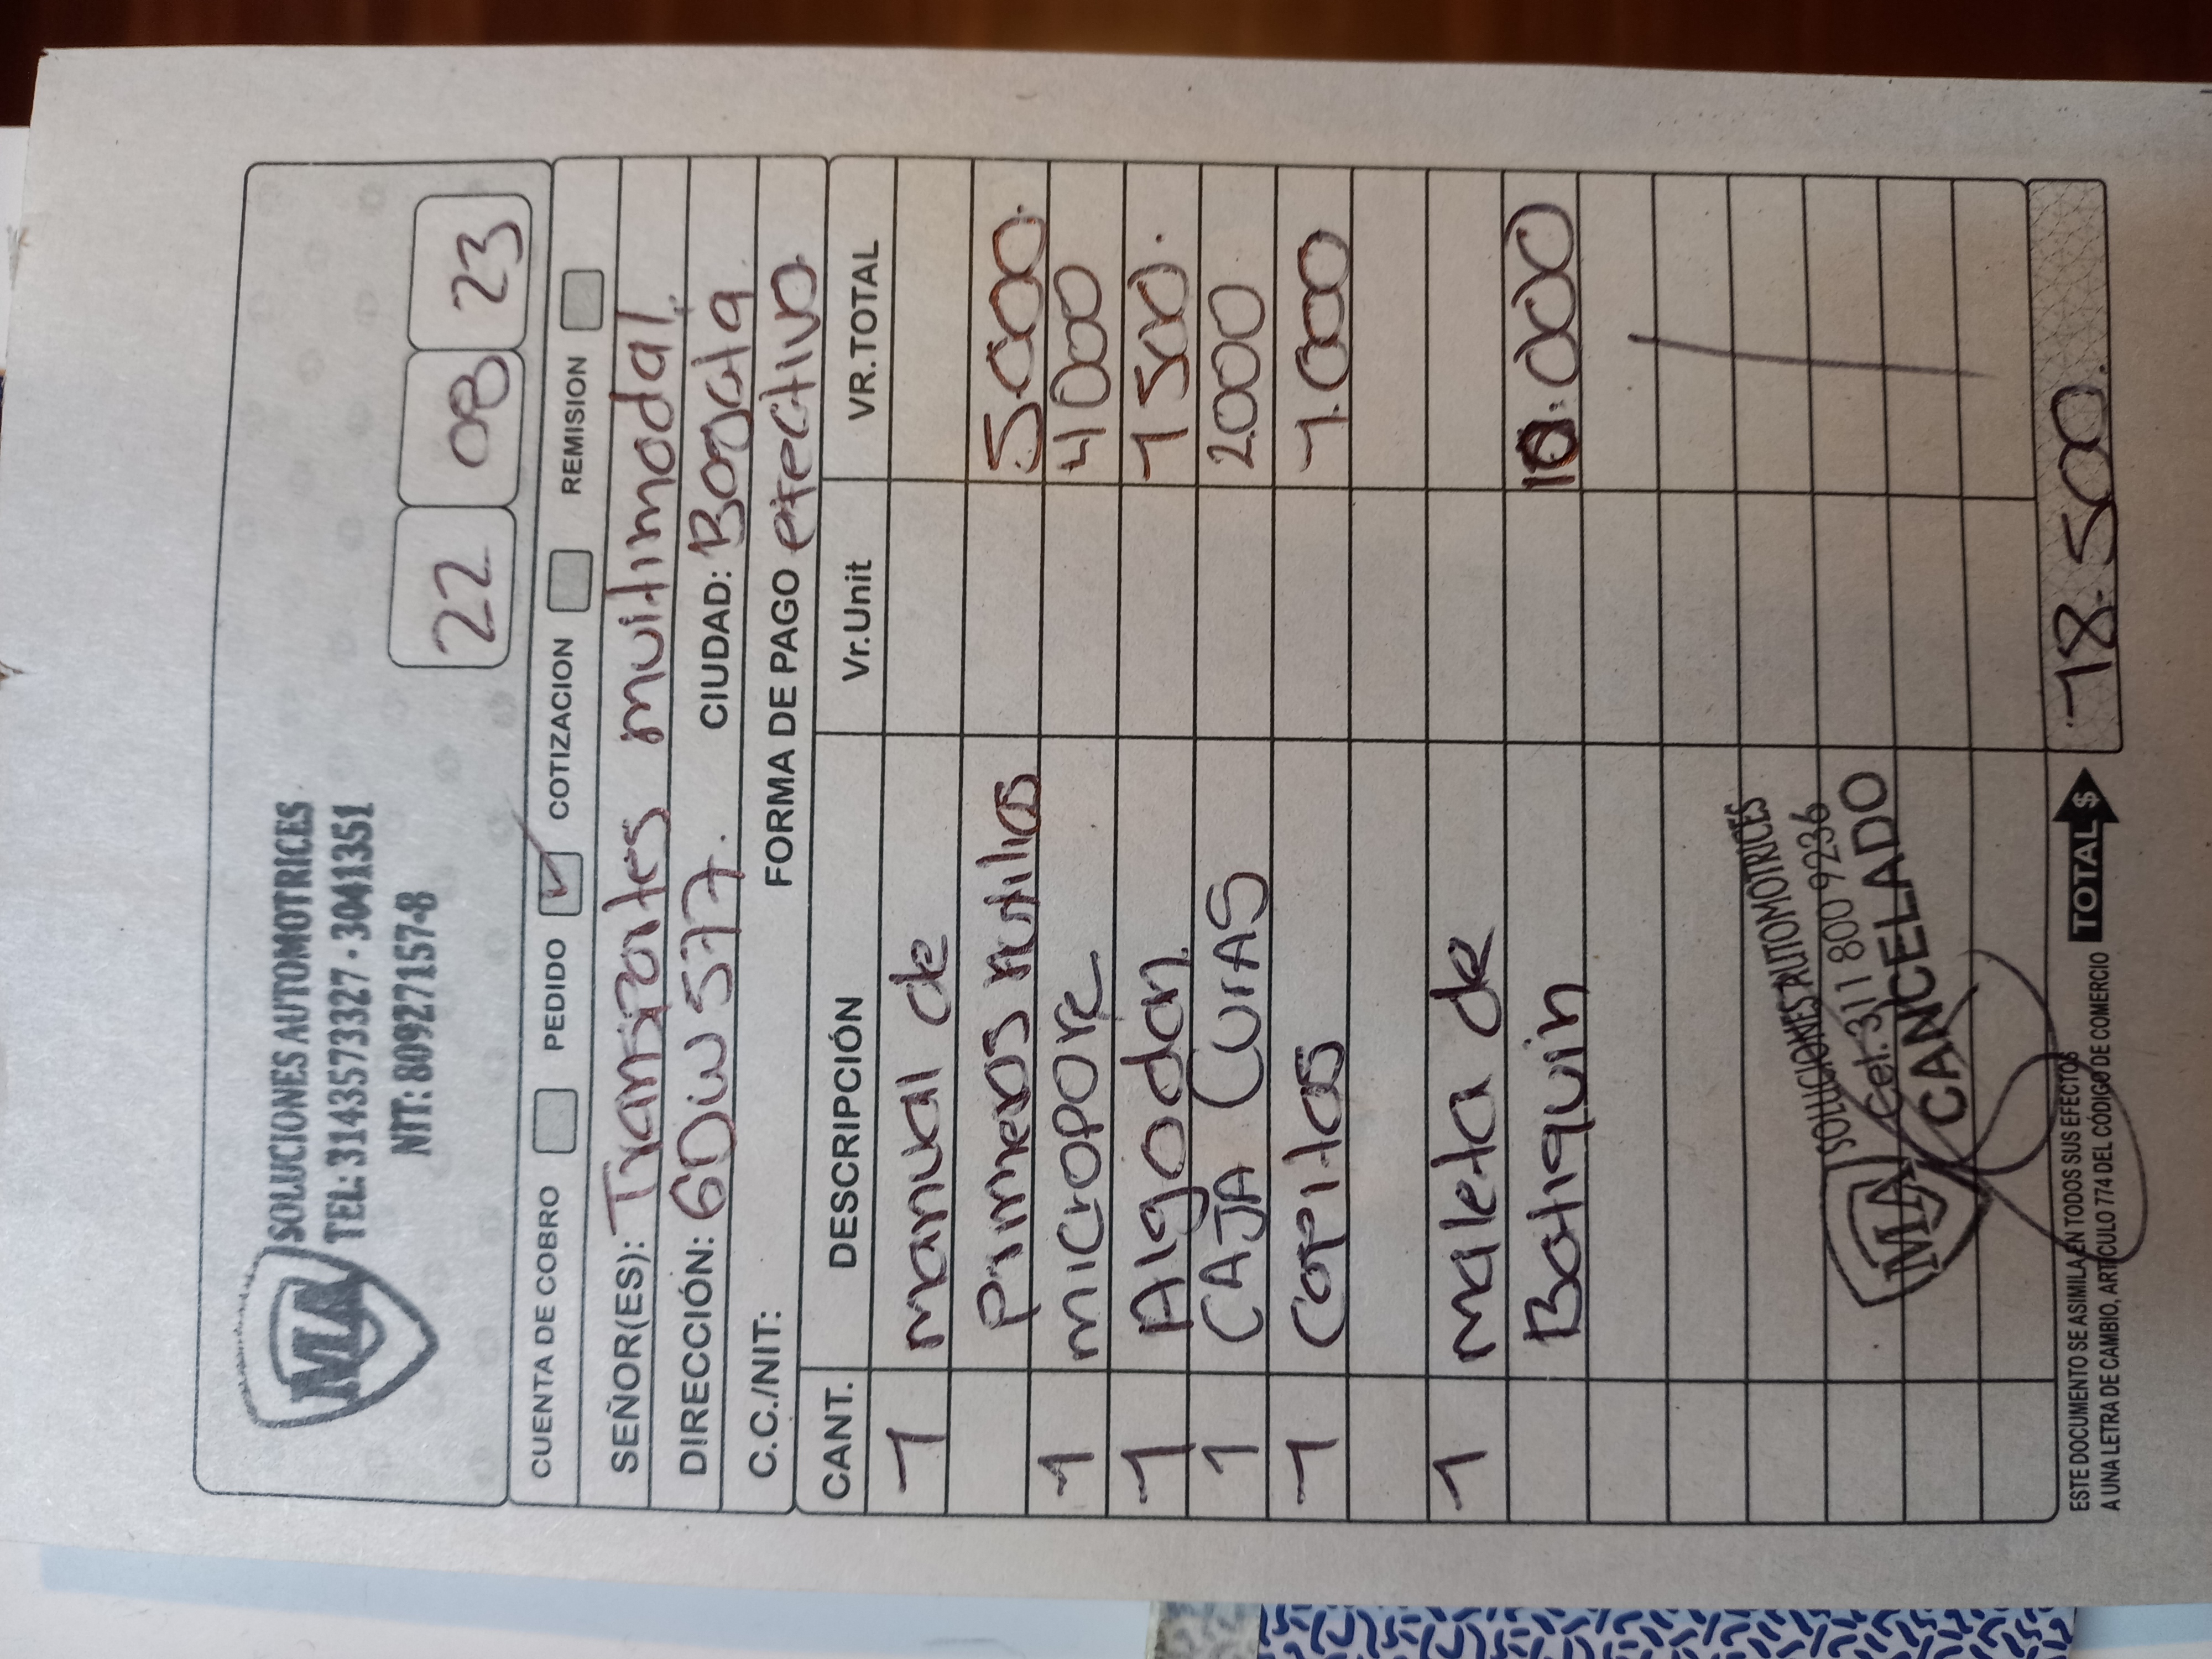 MA SOLUCIONES AUTOMOTRICES
TEL: 3143573327 - 3041351
NIT: 809271157-8
22 08 23
CUENTA DE COBRO PEDIDO COTIZACION REMISION
SEÑOR(ES): Transportes multimodal.
DIRECCIÓN: GDW577. CIUDAD: Bogota
C.C./NIT: FORMA DE PAGO efectivo
CANT. DESCRIPCIÓN Vr.Unit VR.TOTAL
1 manual de
primeros Autilios 5000.
1 micropore 4000
1 Algodon 1500.
1 CAJA CurAS 2000
1 Copitos 1.000
1 maleta de
Botiquin 10.000
SOLUCIONES AUTOMOTRICES
Cel. 311 800 9236
MA CANCELADO
ESTE DOCUMENTO SE ASIMILA EN TODOS SUS EFECTOS
A UNA LETRA DE CAMBIO, ARTÍCULO 774 DEL CÓDIGO DE COMERCIO
TOTAL $ 18.500.